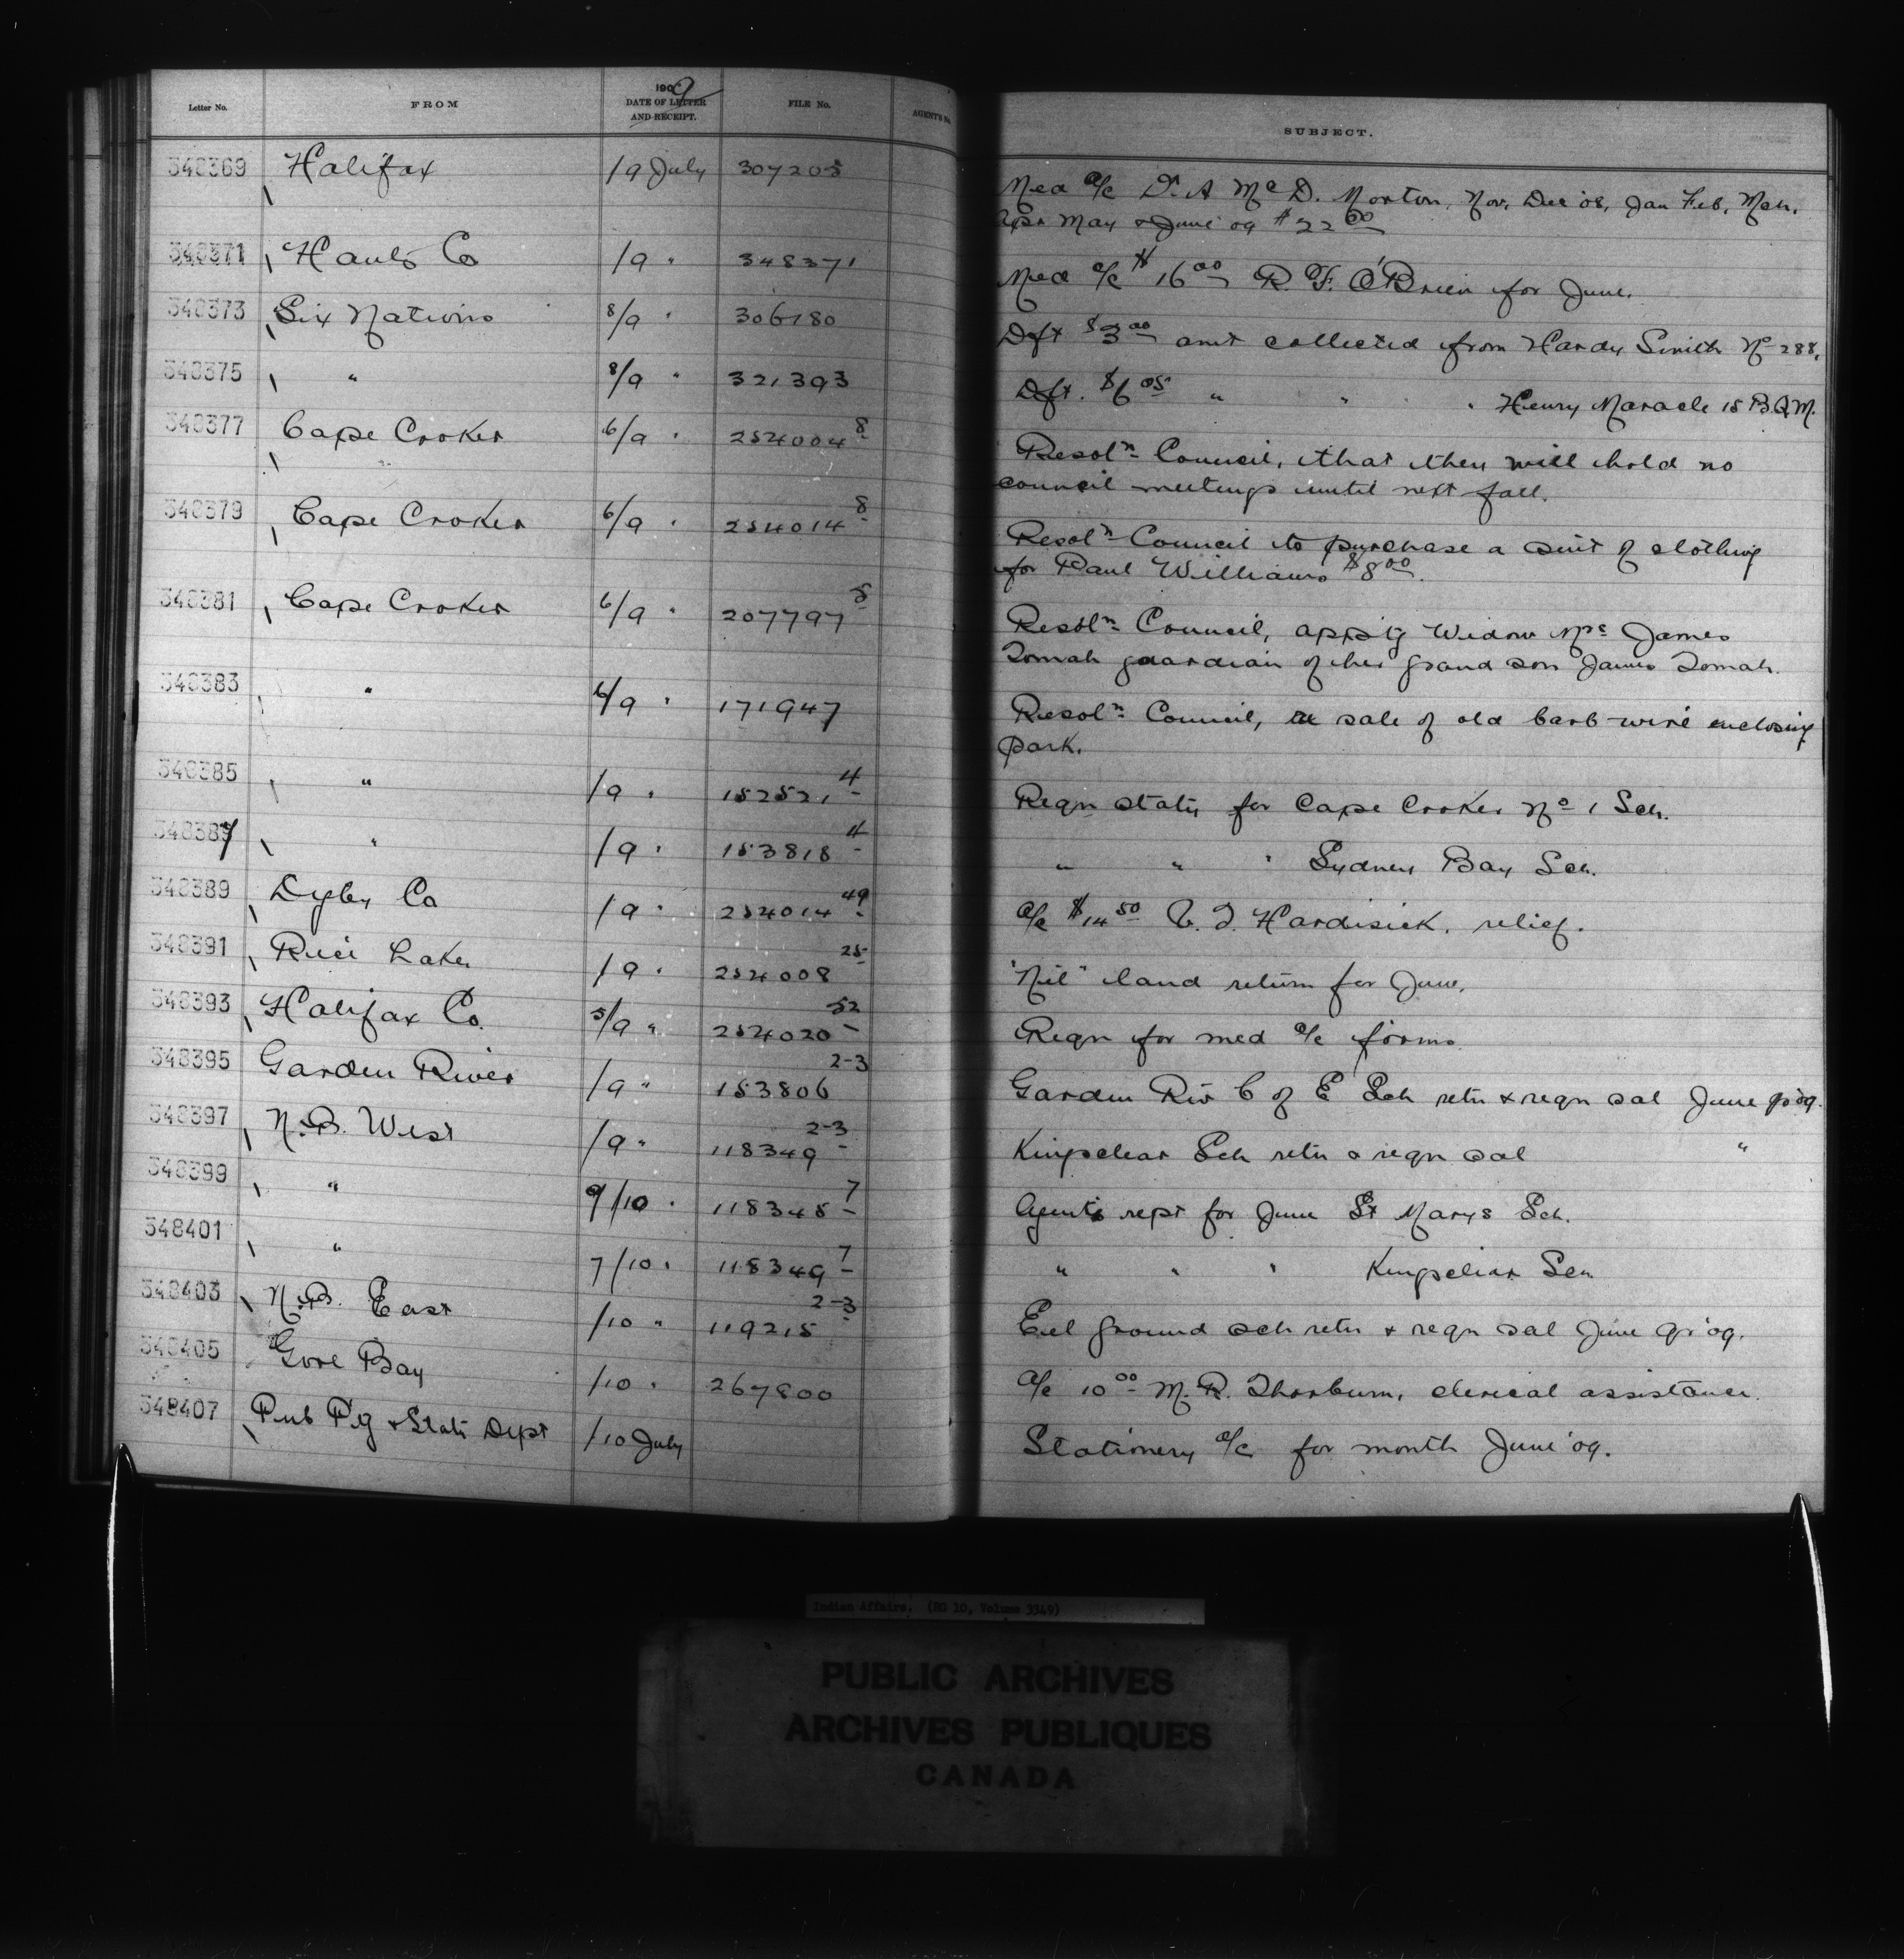 Letter No. FROM 1909 DATE OF LETTER AND RECEIPT. FILE No. AGENT'S No. SUBJECT.
348369 Halifax /9 July 307205 Med a/c Dr. A McD. Morton, Nov, Dec '08, Jan Feb, Mch.
Apr May & June '09 $22 00
348371 Hants Co /9 " 348371 Med a/c $16 00 R. F. O'Brien for June.
348373 Six Nations 8/9 " 306180 Dft $3 00 amt collected from Hardy Smith No 288,
348375 " 8/9 " 321393 Dft. $6 05 " " " Henry Maracle 15 B.Q.M.
348377 Cape Croker 6/9 " 254004 8 Resoln Council, that they will hold no
council meetings until next fall.
348379 Cape Croker 6/9 " 254014 8 Resoln Council to purchase a suit of clothing
for Paul Williams $8 00.
348381 Cape Croker 6/9 " 207797 8 Resoln Council,app'tg Widow Mrs James
Tomah guardian of her grand son James Tomah.
348383 " 6/9 " 171947 Resoln Council, re sale of old barb-wire enclosing
park.
348385 " /9 " 152521 4 Reqn staty for Cape Croker No 1 Sch.
348387 " /9 " 153818 4 " " " Sydney Bay Sch.
348389 Digby Co /9 " 254014 49 a/c $14 50 Hardisick, relief.
348391 Rice Lake /9 " 254008 25 "Nil" land return for June.
348393 Halifax Co. 5/9 " 254020 52 Reqn for med a/c forms
348395 Garden River /9 " 153806 2-3 Garden Riv C of E Sch retn & reqn sal June qr '09.
348397 N.B. West /9 " 118349 2-3 Kingsclear Sch retn & reqn sal "
348399 " 9/10 " 118348 7 Agents rept for June St Marys Sch.
348401 " 7/10 " 118349 7 " " " Kingsclear Sch
348403 N.B. East /10 " 119215 2-3 Eel ground sch retn & reqn sal June qr '09.
348405 Gore Bay /10 " 267800 a/c 10 00 M. R. Thorburn, clerical assistance.
348407 Pub P'tg & Staty Dept /10 July Stationery a/c for month June '09.
Indian Affairs. (RG 10, Volume 3349)
PUBLIC ARCHIVES
ARCHIVES PUBLIQUES
CANADA